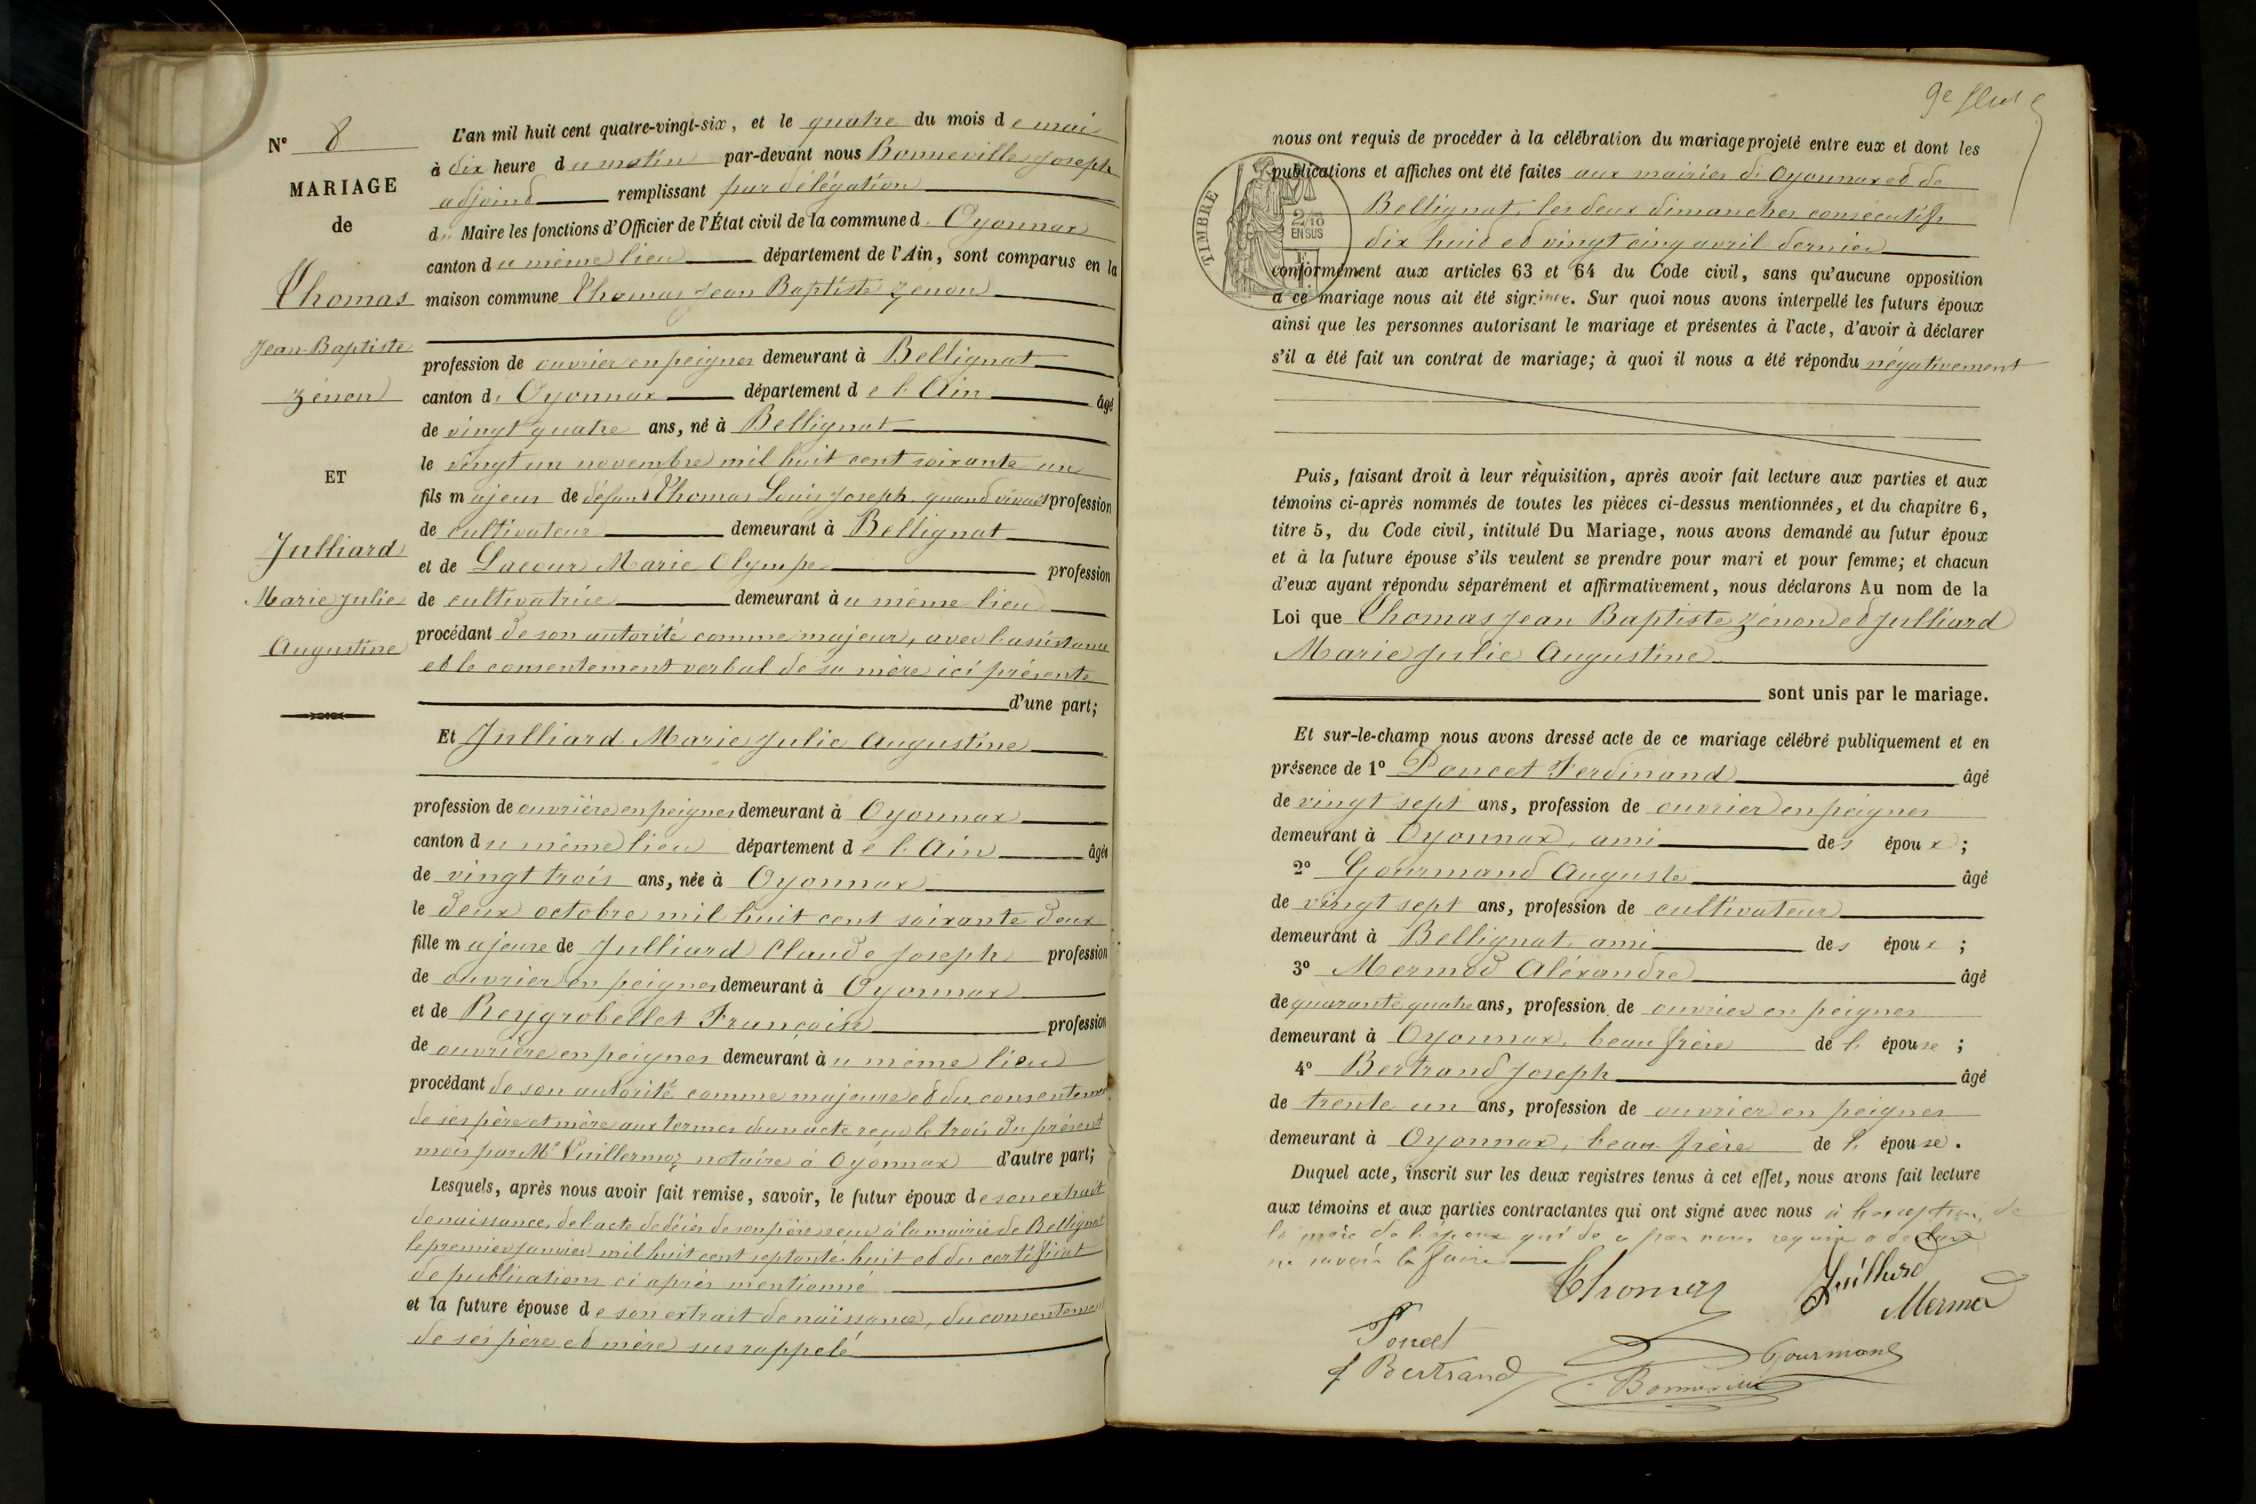 N° 8
MARIAGE
de
Thomas
Jean-Baptiste
Zénon
ET
Julliard
Marie Julie
Augustine
L'an mil huit cent quatre-vingt-six, et le quatre du mois de mai
à dix heure du matin par-devant nous Bonneville Joseph
adjoint remplissant par délégation
du Maire les fonctions d'Officier de l'État civil de la commune d Oyonnax
canton du même lieu département de l'Ain, sont comparus en la
maison commune Thomas Jean Baptiste Zénon
profession de ouvrier en peignes demeurant à Bellignat
canton d'Oyonnax département de l'Ain âgé
de vingt quatre ans, né à Bellignat
le vingt un novembre mil huit cent soixante un
fils majeur de défunt Thomas Louis Joseph quand vivait profession
de cultivateur demeurant à Bellignat
et de Lacour Marie Olympe profession
de cultivatrice demeurant au même lieu
procédant de son autorité comme majeur, avec l'assistance
et le consentement verbal de sa mère ici présente
d'une part;
Et Julliard Marie Julie Augustine
profession de ouvrière en peignes demeurant à Oyonnax
canton du même lieu département de l'Ain âgée
de vingt trois ans, née à Oyonnax
le deux octobre mil huit cent soixante deux
fille majeure de Julliard Claude Joseph profession
de ouvrier en peignes demeurant à Oyonnax
et de Reygrobellet Françoise profession
de ouvrière en peignes demeurant au même lieu
procédant de son autorité comme majeure et du consentement
de ses père et mère aux termes d'un acte reçu le trois du présent
mois par Me Vuillermoz notaire à Oyonnax d'autre part;
Lesquels, après nous avoir fait remise, savoir, le futur époux de son extrait
de naissance, de l'acte de décès de son père reçu à la mairie de Bellignat
le premier janvier mil huit cent septante huit et du certificat
de publications ci après mentionné
et la future épouse de son extrait de naissance, du consentement
de ses père et mère sus rappelé
9e
nous ont requis de procéder à la célébration du mariage projeté entre eux et dont les
publications et affiches ont été faites aux mairies d'Oyonnax et de
Bellignat, les deux dimanches consécutifs
dix huit et vingt cinq avril dernier
TIMBRE
2/10
EN SUS
conformément aux articles 63 et 64 du Code civil, sans qu'aucune opposition
à ce mariage nous ait été signifiée. Sur quoi nous avons interpellé les futurs époux
ainsi que les personnes autorisant le mariage et présentes à l'acte, d'avoir à déclarer
s'il a été fait un contrat de mariage; à quoi il nous a été répondu négativement
Puis, faisant droit à leur réquisition, après avoir fait lecture aux parties et aux
témoins ci-après nommés de toutes les pièces ci-dessus mentionnées, et du chapitre 6,
titre 5, du Code civil, intitulé Du Mariage, nous avons demandé au futur époux
et à la future épouse s'ils veulent se prendre pour mari et pour femme; et chacun
d'eux ayant répondu séparément et affirmativement, nous déclarons Au nom de la
Loi que Thomas Jean Baptiste Zénon et Julliard
Marie Julie Augustine
sont unis par le mariage.
Et sur-le-champ nous avons dressé acte de ce mariage célébré publiquement et en
présence de 1° Poncet Ferdinand âgé
de vingt sept ans, profession de ouvrier en peignes
demeurant à Oyonnax, ami des époux;
2° Gourmand Auguste âgé
de vingt sept ans, profession de cultivateur
demeurant à Bellignat, ami des époux;
3° Mermod Aléxandre âgé
de quarante quatre ans, profession de ouvrier en peignes
demeurant à Oyonnax, beau frère de l'épouse;
4° Bertrand Joseph âgé
de trente un ans, profession de ouvrier en peignes
demeurant à Oyonnax, beau frère de l'épouse.
Duquel acte, inscrit sur les deux registres tenus à cet effet, nous avons fait lecture
aux témoins et aux parties contractantes qui ont signé avec nous à l'exception de
la mère de l'époux qui de ce par nous requise a déclaré
ne savoir le faire
Thomas
Juilliard
Mermod
Poncet
Gourmand
J Bertrand
Bonneville